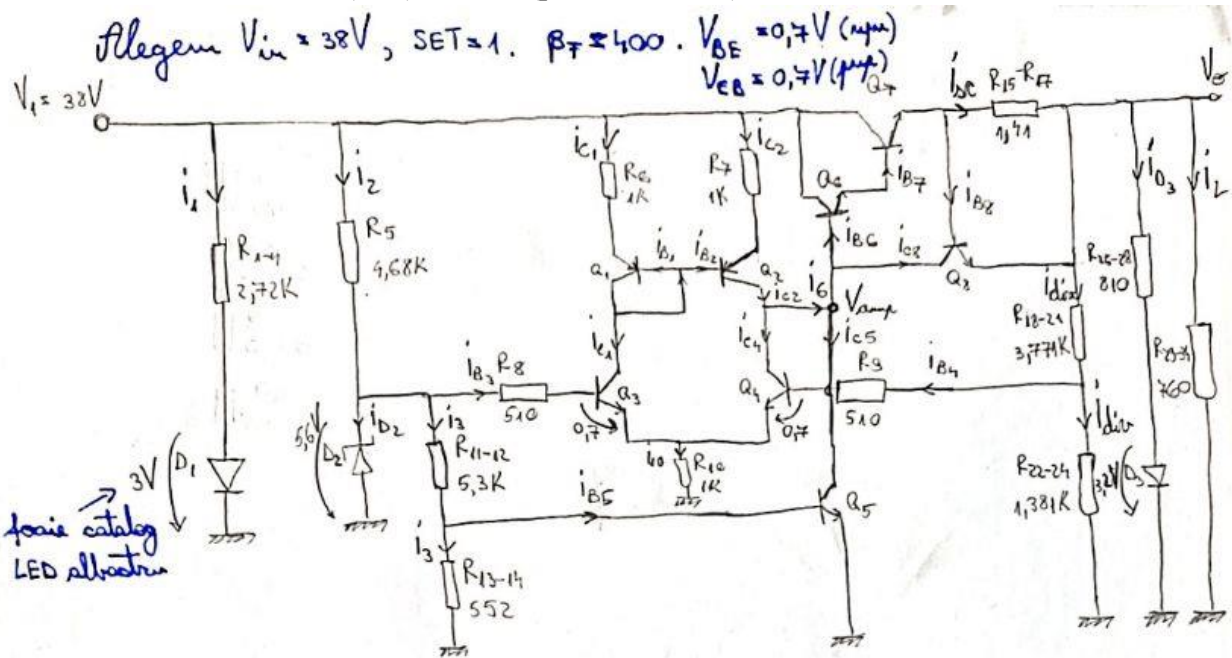 Alegem Vin = 38V, SET=1. βF = 400. VBE = 0,7V (npn)
VEB = 0,7V (pnp)
V1 = 38V
i1
R1-4
2,72K
3V
D1
foaie catalog
LED albastru
i2
R5
4,68K
5,6
D2
iD2
i3
R11-12
5,3K
i3
R13-14
552
iB3
R8
510
iC1
R6
1K
iC2
R7
1K
Q1
iB1
iB2
Q2
iC1
iC2
i6
iC4
Q3
0,7
Q4
0,7
i10
R10
1K
iB5
Q5
Vamp
iC5
R9
510
iB4
Q6
iB6
iB7
Q7
iC8
iB8
Q8
iSC
R15-R17
1,41
idiv
R18-21
3,771K
idiv
R22-24
1,381K
iD3
R25-28
810
3,2V
D3
iL
760